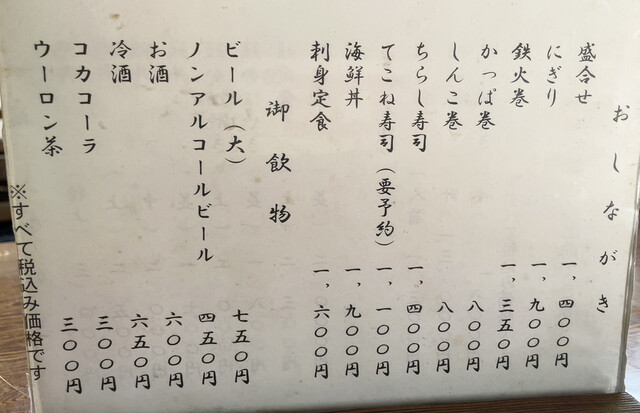 おしながき
盛合せ 一、四〇〇円
にぎり 一、九〇〇円
鉄火巻 一、三五〇円
かっぱ巻 八〇〇円
しんこ巻 八〇〇円
ちらし寿司 一、四〇〇円
てこね寿司(要予約) 一、一〇〇円
海鮮丼 一、九〇〇円
刺身定食 一、六〇〇円
御飲物
ビール(大) 七五〇円
ノンアルコールビール 四五〇円
お酒 六〇〇円
冷酒 六五〇円
コカコーラ 三〇〇円
ウーロン茶 三〇〇円
※すべて税込み価格です